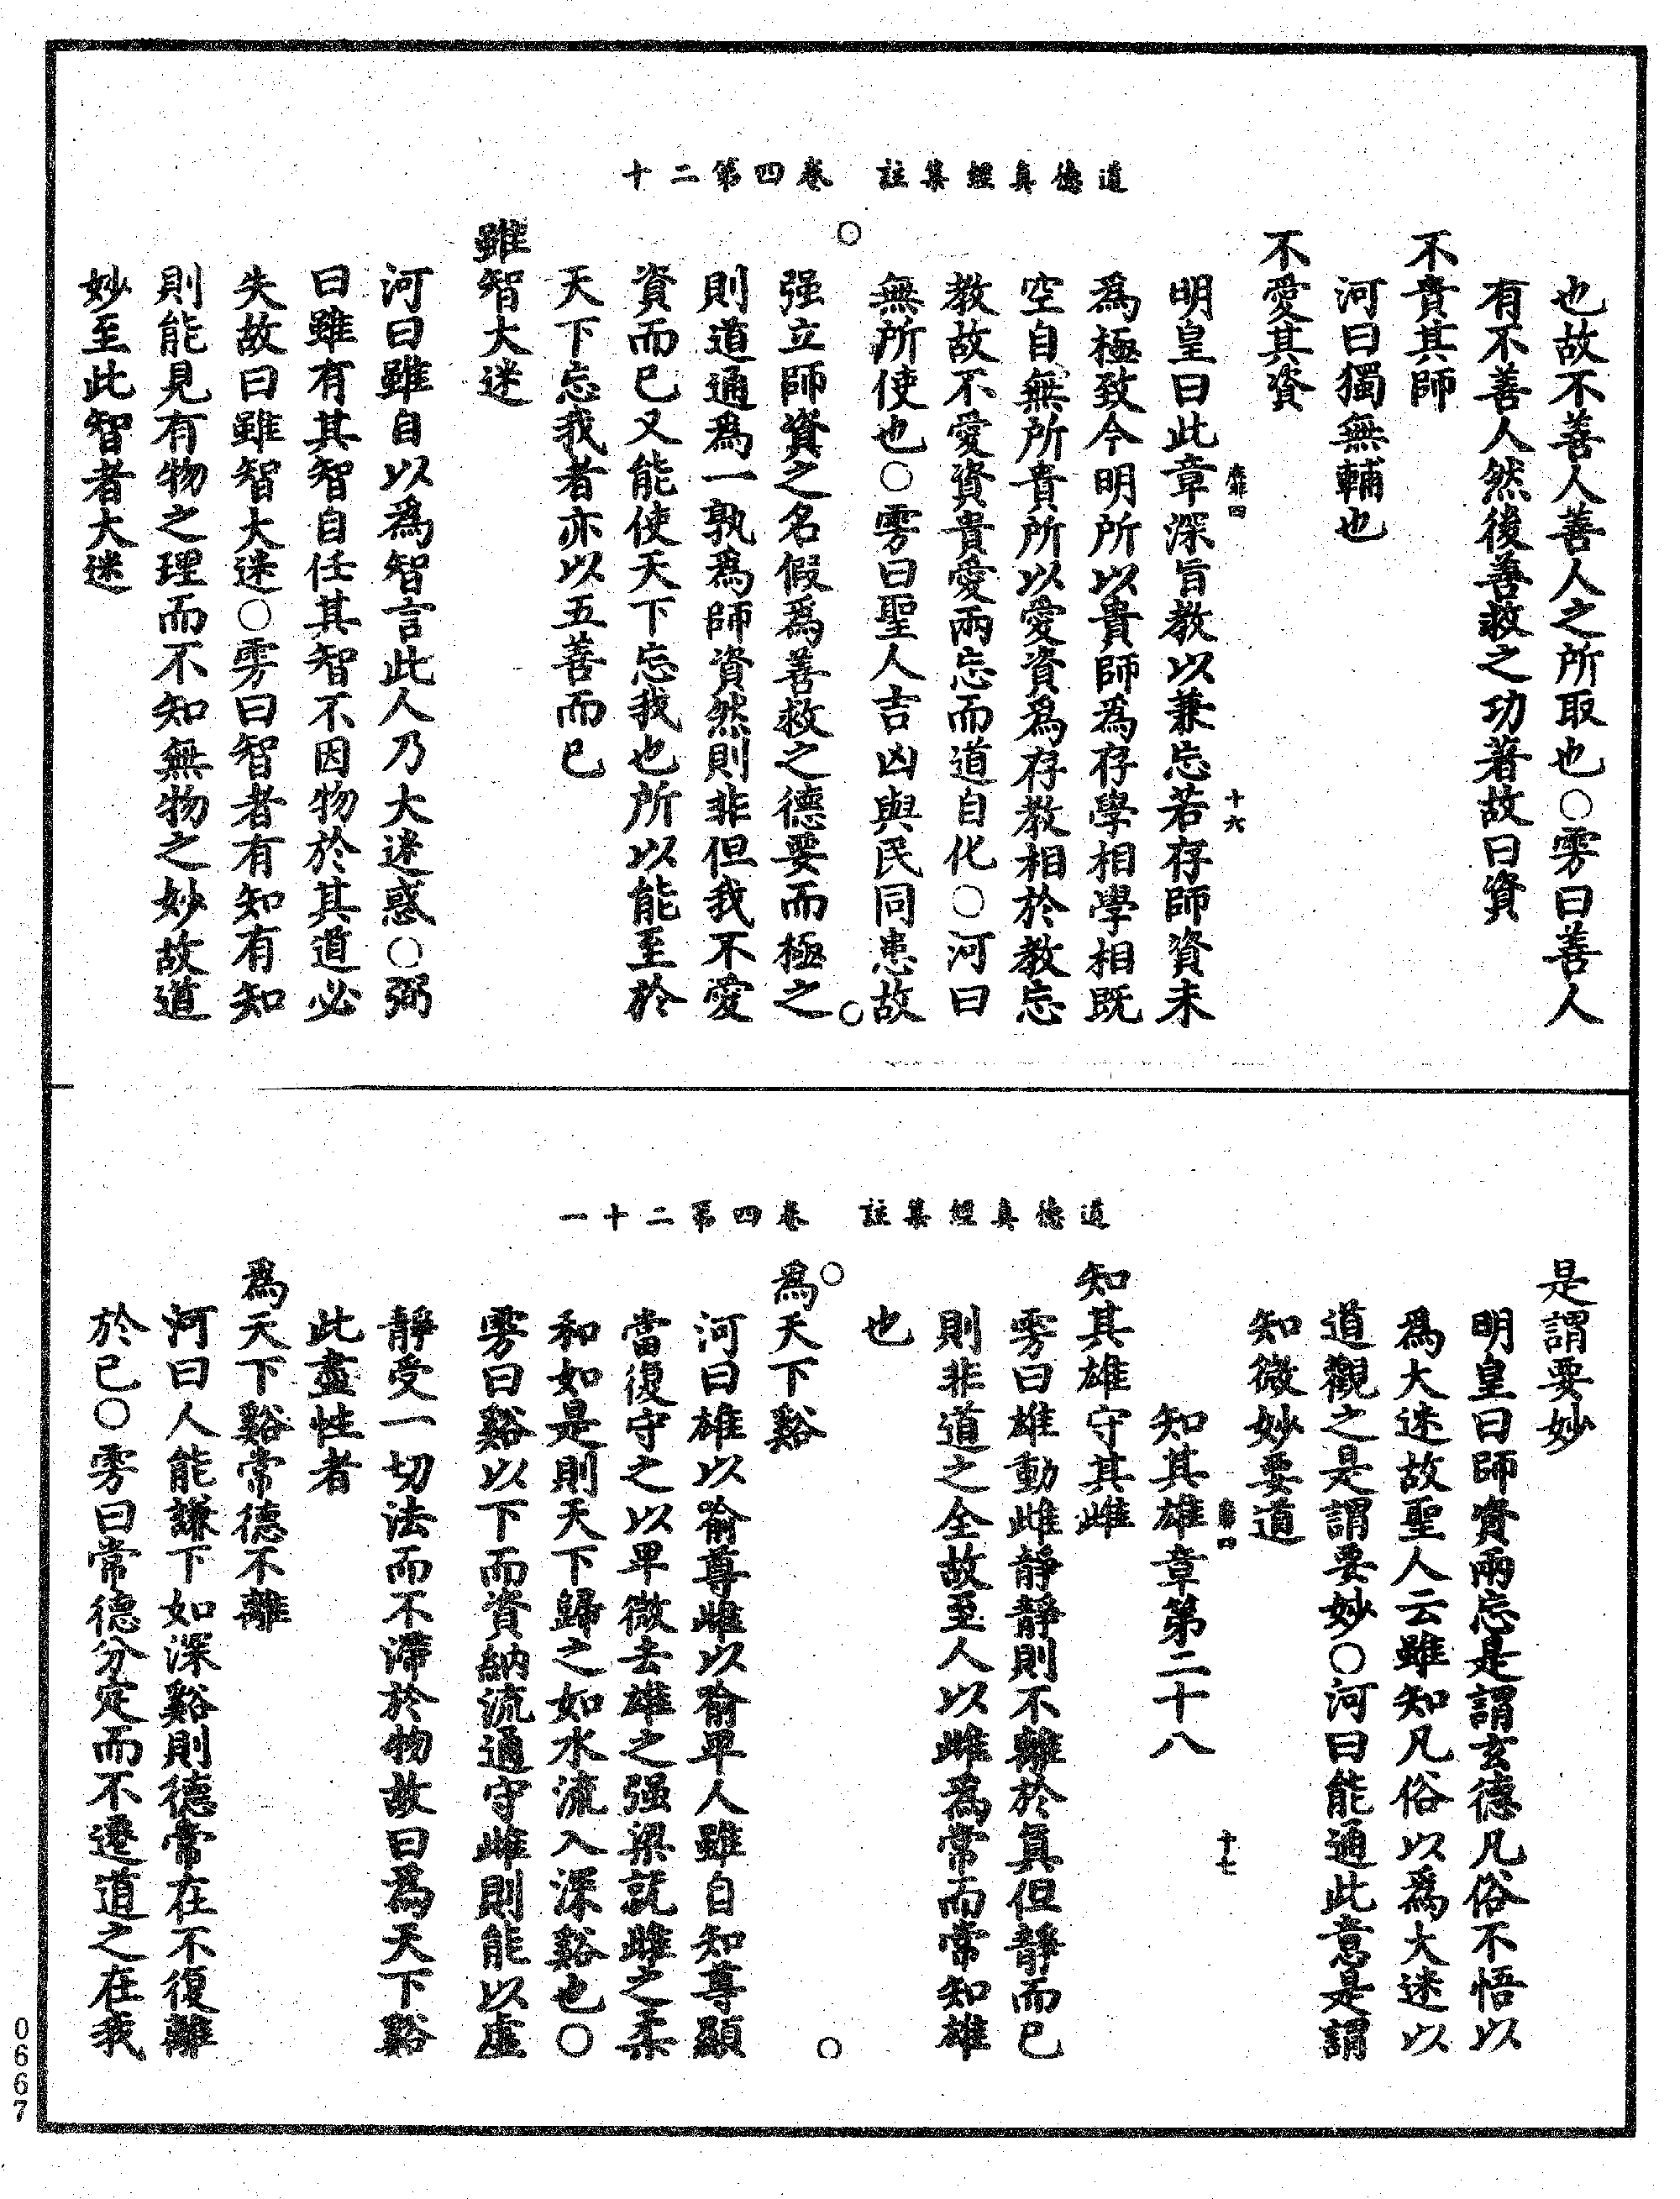 道德真經集註　卷四第二十
也故不善人善人之所取也○雱曰善人
有不善人然後善救之功著故曰資
不貴其師
河曰獨無輔也
不愛其資
十六
明皇曰此章深旨教以兼忘若存師資未
為極致今明所以貴師為存學相學相既
空自無所貴所以愛資為存教相於教忘
教故不愛資貴愛兩忘而道自化○河曰
無所使也○雱曰聖人吉凶與民同患故
强立師資之名假為善救之德要而極之
則道通為一孰為師資然則非但我不愛
資而已又能使天下忘我也所以能至於
天下忘我者亦以五善而已
雖智大迷
河曰雖自以為智言此人乃大迷惑○弼
曰雖有其智自任其智不因物於其道必
失故曰雖智大迷○雱曰智者有知有知
則能見有物之理而不知無物之妙故道
妙至此智者大迷
道德真經集註　卷四第二十一
是謂要妙
明皇曰師資兩忘是謂玄德凡俗不悟以
為大迷故聖人云雖知凡俗以為大迷以
道觀之是謂要妙○河曰能通此意是謂
知微妙要道
十七
知其雄章第二十八
知其雄守其雌
雱曰雄動雌靜靜則不離於真但靜而已
則非道之全故至人以雌為常而常知雄
也
為天下谿
河曰雄以喻尊雌以喻卑人雖自知尊顯
當復守之以卑微去雄之强梁就雌之柔
和如是則天下歸之如水流入深谿也○
雱曰谿以下而資納流通守雌則能以虛
靜受一切法而不滯於物故曰為天下谿
此盡性者
為天下谿常德不離
河曰人能謙下如深谿則德常在不復離
於已○雱曰常德分定而不遷道之在我
0667